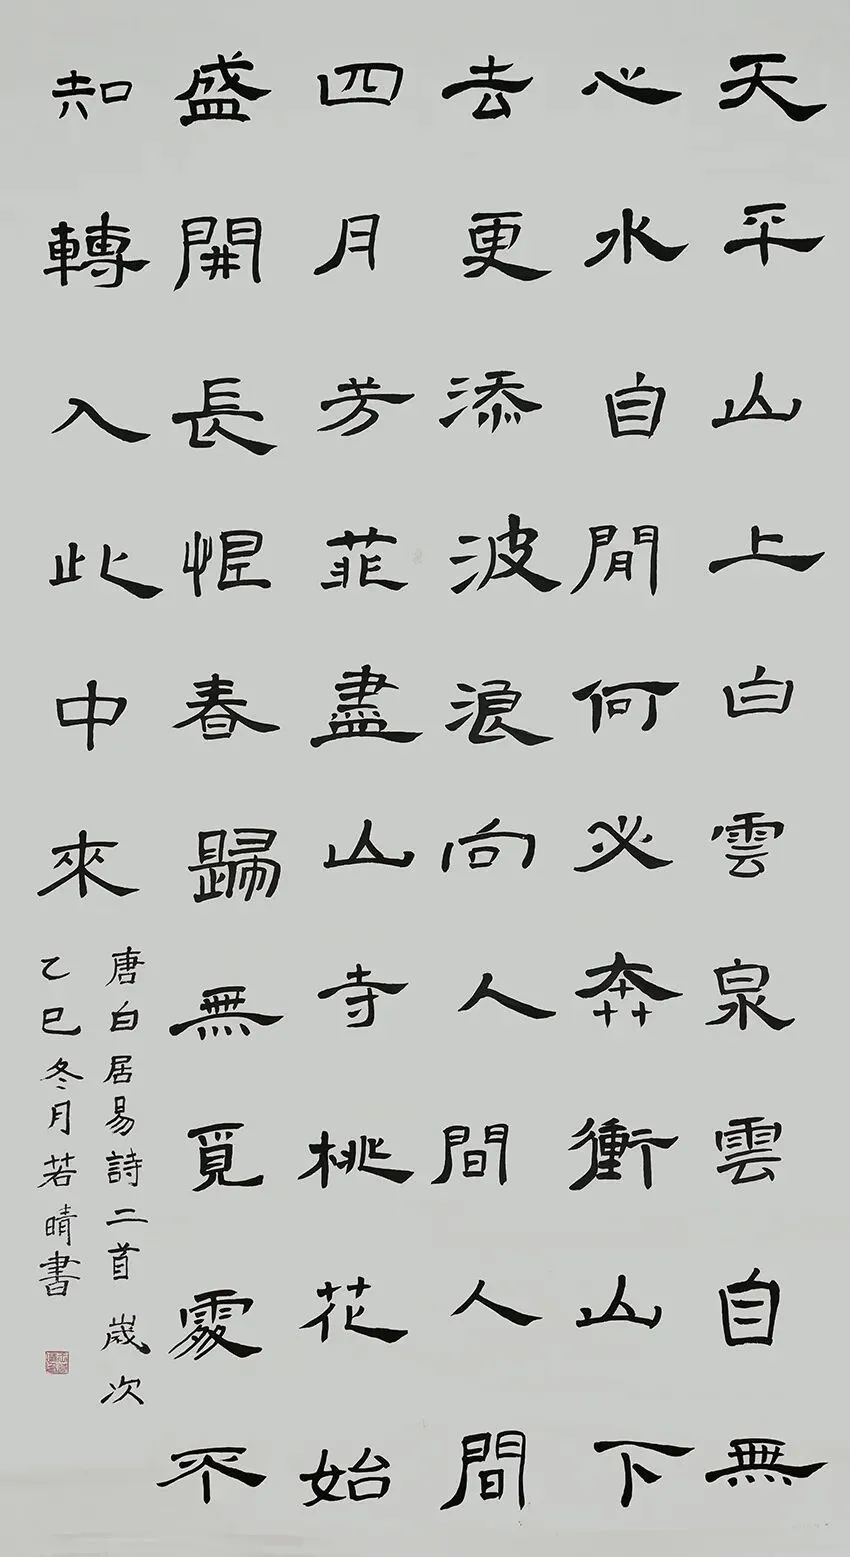 天平山上白雲泉雲自無
心水自閒何必奔衝山下
去更添波浪向人間人間
四月芳菲盡山寺桃花始
盛開長恨春歸無覓處不
知轉入此中來
唐白居易詩二首歲次
乙巳冬月若晴書